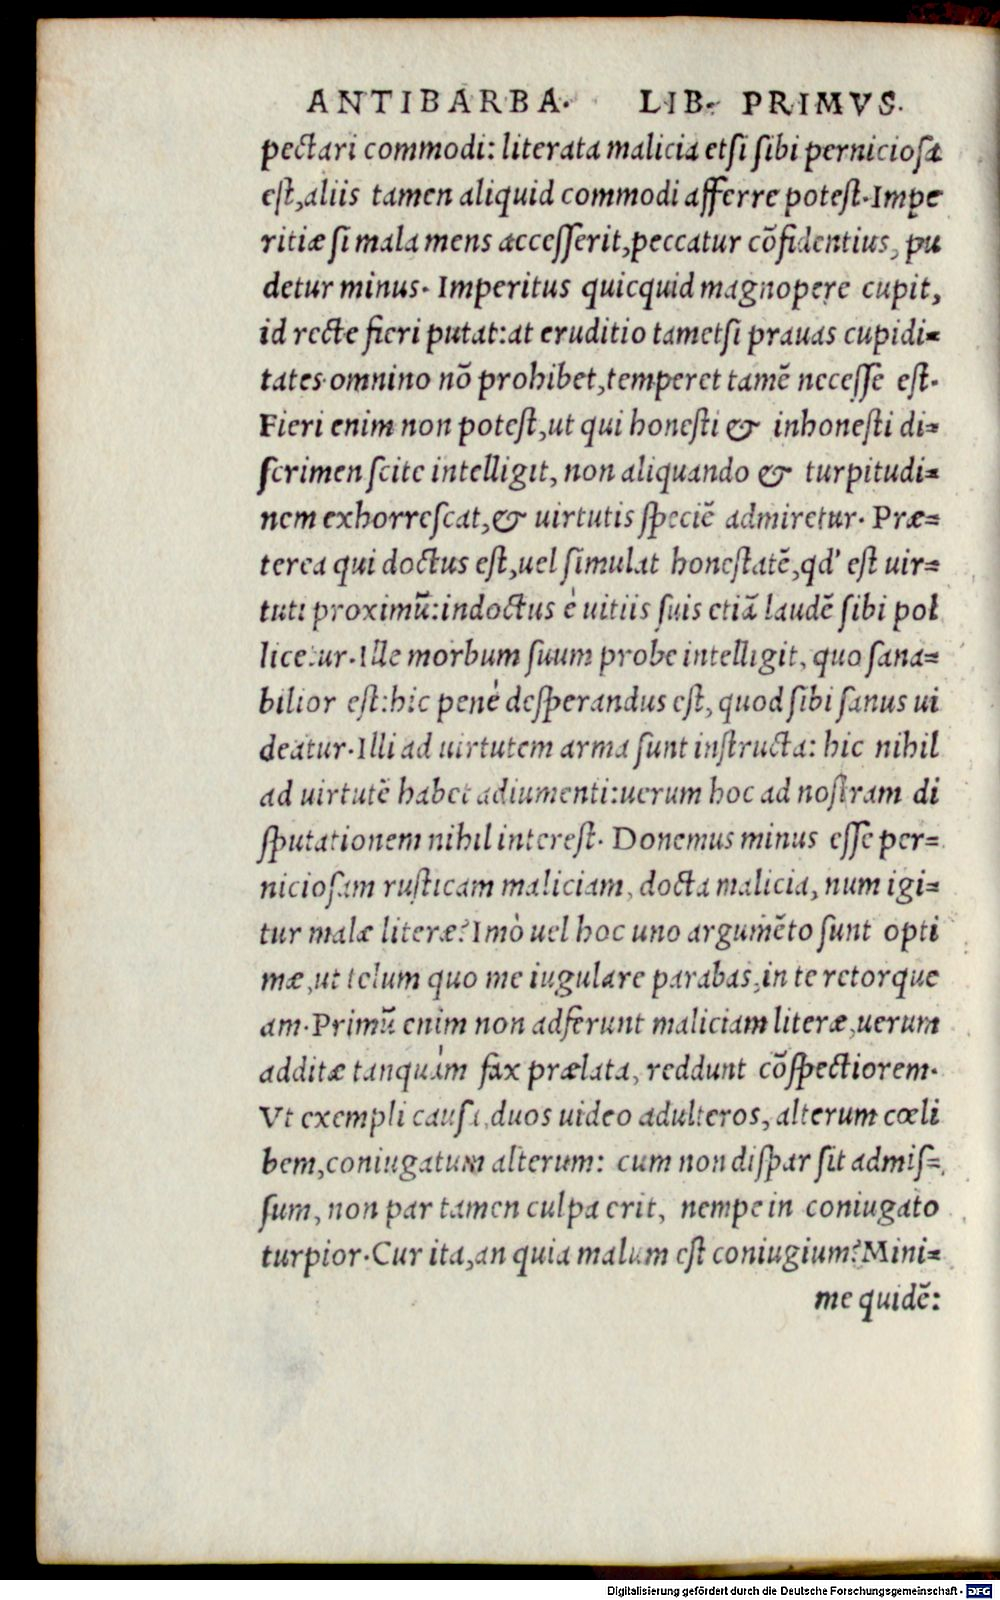 ANTIBARBA. LIB. PRIMVS.
pectari commodi: literata malicia etsi sibi perniciosa
est, aliis tamen aliquid commodi afferre potest. Impe
ritiæ si mala mens accesserit, peccatur cõfidentius, pu
detur minus. Imperitus quicquid magnopere cupit,
id recte fieri putat: at eruditio tametsi prauas cupidi=
tates omnino nõ prohibet, temperet tamẽ necesse est.
Fieri enim non potest, ut qui honesti & inhonesti di=
scrimen scite intelligit, non aliquando & turpitudi=
nem exhorrescat, & uirtutis speciẽ admiretur. Præ=
terea qui doctus est, uel simulat honestatẽ, qd' est uir=
tuti proximũ: indoctus è uitiis suis etiã laudẽ sibi pol
licetur. Ille morbum suum probe intelligit, quo sana=
bilior est: hic penè desperandus est, quod sibi sanus ui
deatur. Illi ad uirtutem arma sunt instructa: hic nihil
ad uirtutẽ habet adiumenti: uerum hoc ad nostram di
sputationem nihil interest. Donemus minus esse per=
niciosam rusticam maliciam, docta malicia, num igi=
tur malæ literæ? Imò uel hoc uno argumẽto sunt opti
mæ, ut telum quo me iugulare parabas, in te retorque
am. Primũ enim non adferunt maliciam literæ, uerum
additæ tanquàm fax prælata, reddunt cõspectiorem.
Vt exempli causa, duos uideo adulteros, alterum cœli
bem, coniugatum alterum: cum non dispar sit admis=
sum, non par tamen culpa erit, nempe in coniugato
turpior. Cur ita, an quia malum est coniugium? Mini=
me quidẽ:
Digitalisierung gefördert durch die Deutsche Forschungsgemeinschaft - DFG